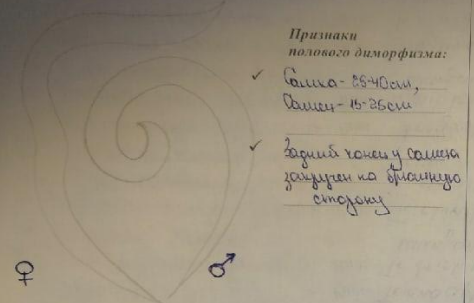 Признаки
полового диморфизма:
✓ Самка - 25-40см,
Самец - 15-25см
✓ Задний конец у самца
закручен на брюшную
сторону
♀ ♂